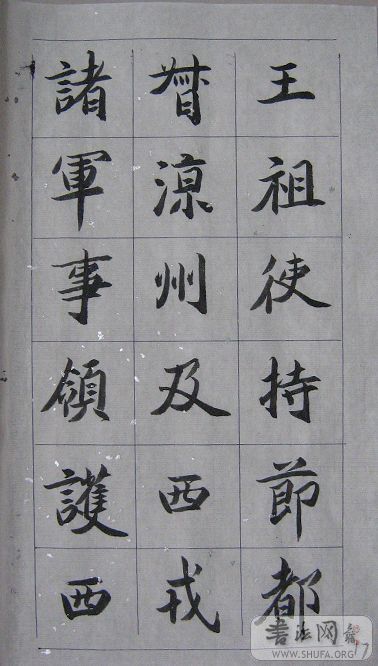 王祖使持節都
督涼州及西戎
諸軍事領護西
書法网
WWW.SHUFA.ORG
17